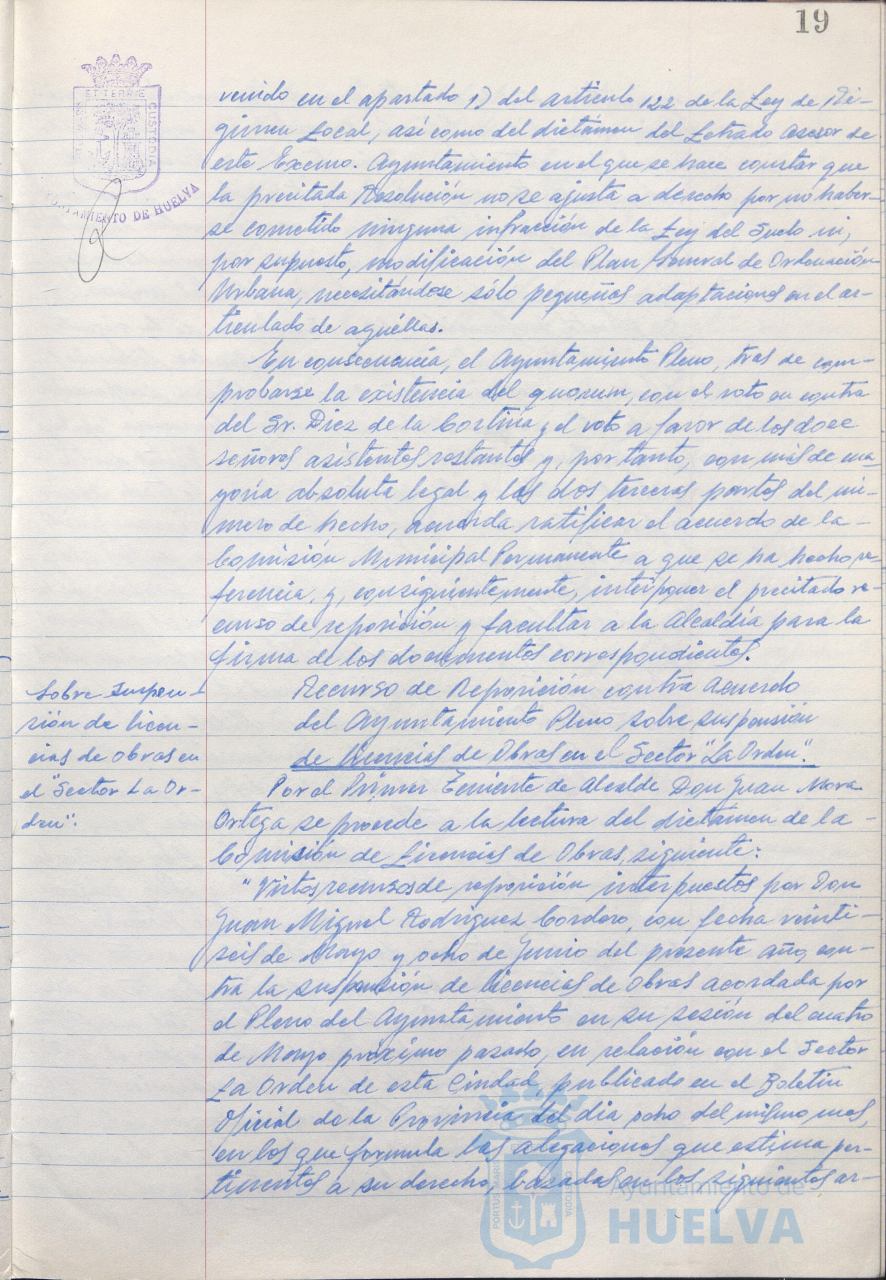 19
venido en el apartado 1) del artículo 122 de la Ley de Ré-
gimen Local, así como del dictámen del Letrado Asesor de
este Excmo. Ayuntamiento en el que se hace constar que
la precitada Resolución no se ajusta a derecho por no haber-
se cometido ninguna infracción de la Ley del Suelo ni,
por supuesto, modificación del Plan General de Ordenación
Urbana, necesitándose sólo pequeñas adaptaciones en el ar-
ticulado de aquéllas.
En consecuencia, el Ayuntamiento Pleno, tras de com-
probarse la existencia del quorum, con el voto en contra
del Sr. Diez de la Cortina y el voto a favor de los doce
señores asistentes restantes y, por tanto, con más de ma-
yoría absoluta legal y las dos terceras partes del nú-
mero de hecho, acuerda ratificar el acuerdo de la
Comisión Municipal Permanente a que se ha hecho re-
ferencia, y, consiguientemente, interponer el precitado re-
curso de reposición y facultar a la Alcaldía para la
firma de los documentos correspondientes.
Sobre suspen-
sión de licen-
cias de obras en
el "Sector La Or-
den".
Recurso de Reposición contra acuerdo
del Ayuntamiento Pleno sobre suspensión
de licencias de Obras en el Sector "La Orden".
Por el Primer Teniente de Alcalde Don Juan Mora
Ortega se procede a la lectura del dictámen de la
Comisión de Licencias de Obras, siguiente:
"Vistos recursos de reposición interpuestos por Don
Juan Miguel Rodríguez Cordero, con fecha veinti-
seis de Mayo y ocho de Junio del presente año, con-
tra la suspensión de licencias de obras acordada por
el Pleno del Ayuntamiento en su sesión del cuatro
de Mayo próximo pasado, en relación con el Sector
La Orden de esta Ciudad, publicado en el Boletín
Oficial de la Provincia del día ocho del mismo mes,
en los que formula las alegaciones que estima per-
tinentes a su derecho, basadas en los siguientes ar-
ETTERRE
CUSTODIA
AYUNTAMIENTO DE HUELVA
PORTUS MARIS
CUSTODIA
Ayuntamiento de
HUELVA